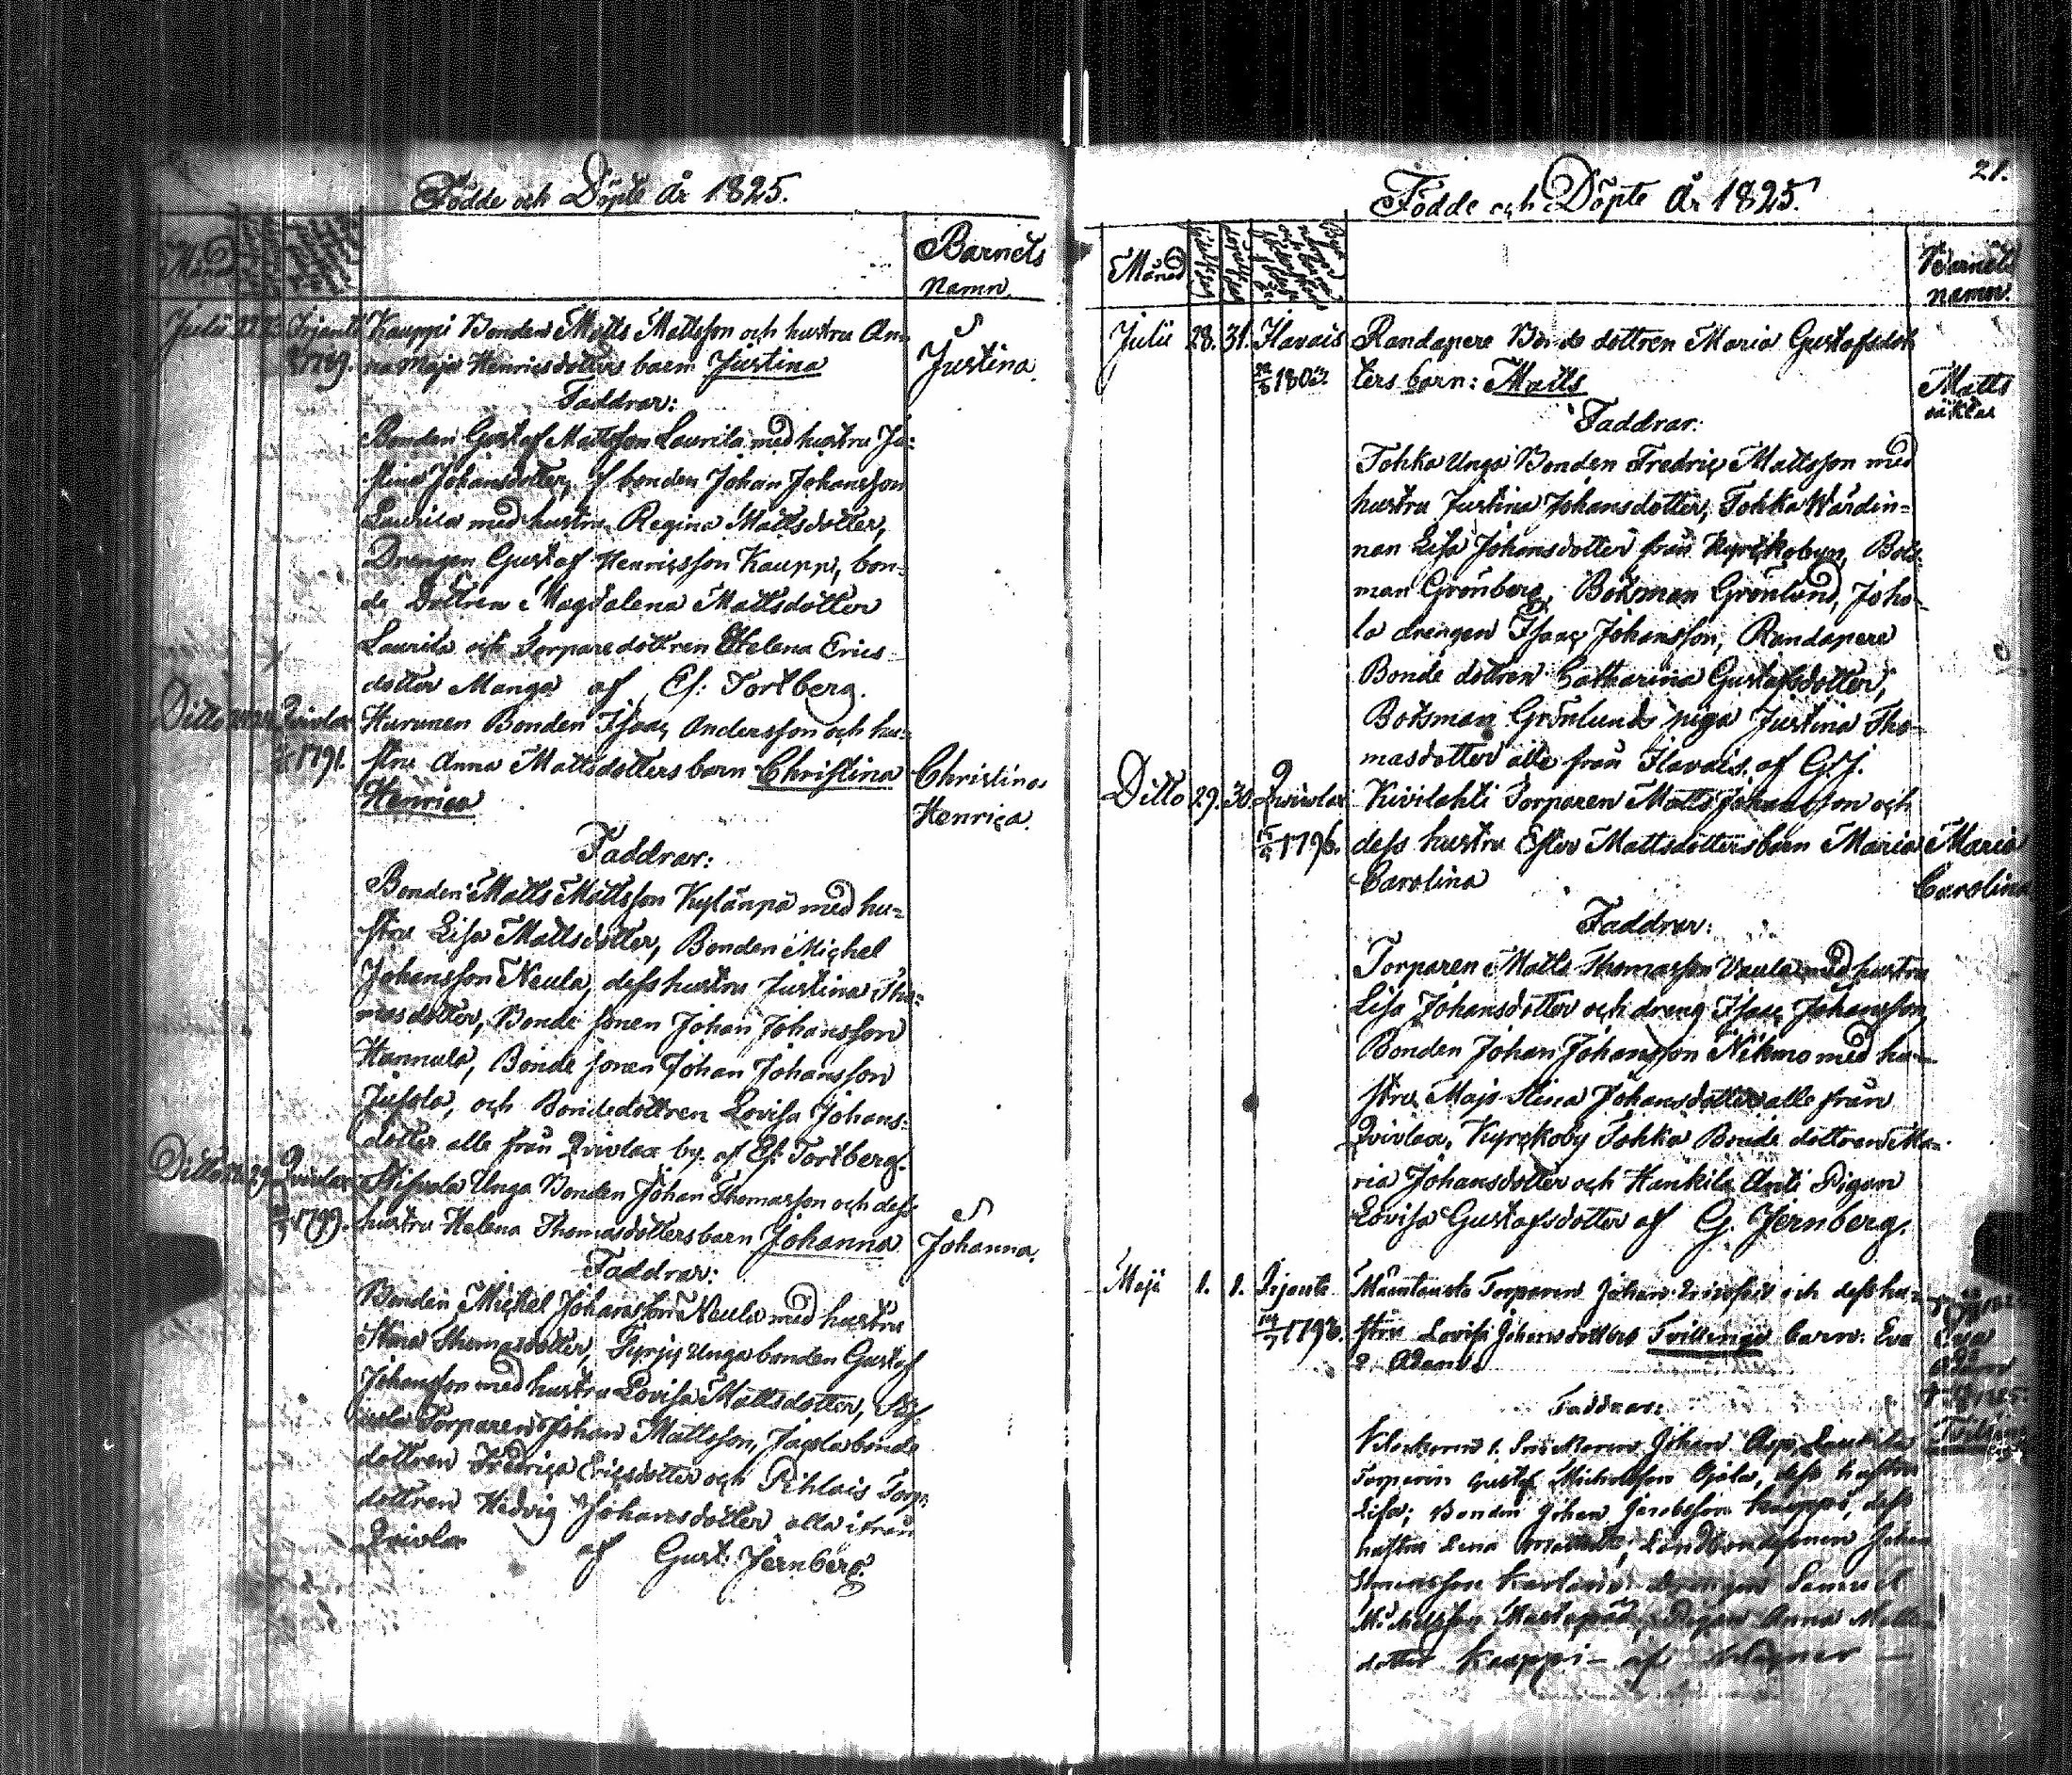 Födde och Döpte År 1825.
Barnets
namn.
Julii Kauppi Bonden Matts Mattsson och hustru An-
na Maja Henricsdotters barn Justina
Justina.
Faddrar:
Bonden Gustaf Mattsson Laurila med hustru Ju-
stina Johansdotter, f bonden Johan Johansson
Laurila med hustru Regina Mattsdotter,
Drengen Gustaf Henricsson Kauppi, bon-
de dottren Magdalena Mattsdotter
Laurila och Torpare dottren Helena Erics
dotter Manga af Ef: Tortberg.
Ditto Qvivlax Hurunen Bonden Isaac Andersson och hu-
1791. stru Anna Mattsdotters barn Christina
Henrica
Christina
Henrica.
Faddrar:
Bonden Matts Mattsson Kylänpä med hu-
stru Lisa Mattsdotter, Bonden Michel
Johansson Neula, dess hustru Justina Tho-
masdotter, Bonde sonen Johan Johansson
Hannula, Bonde sonen Johan Johansson
Jussola, och Bondedottren Lovisa Johans-
dotter alle från Qvivlax by. af Ef: Tortberg.
Ditto 29. Qvivlax Unga Bonden Johan Thomasson och dess
1799. hustru Helena Thomasdotters barn Johanna
Johanna.
Faddrar:
Bonden Michel Johansson Neula med hustru
Stina Thomasdotter, Unga bonden Gustaf
Johansson med hustru Lovisa Mattsdotter,
Torparen Johan Mattsson, bonde
dottren Fredrica Ericsdotter och Pihlais Torp.
dottren Hedvig Johansdotter alla ifrån
Qvivlax af Gust. Jernberg.
21.
Födde och Döpte År 1825.
Månad
Barnets
namn.
Julii 28. 31. Ilavais Randapere Bonde dottren Maria Gustafsdot
ters barn: Matts
Matts
oäkta
Faddrar:
Tohka Unga Bonden Fredric Mattsson med
hustru Justina Johansdotter, Tohka Wärdin-
nan Lisa Johansdotter från Kyrckobyn, Bots-
man Grönberg, Botsman Grönlund, Joho-
la drengen Isaac Johansson, Randapere
Bonde dottren Catharina Gustafsdotter,
Botsman Grönlunds piga Justina Tho-
masdotter alle från Ilavais. af G.J.
Ditto 29. 30. Qvivlax Kivilahti Torparen Matts Johansson och
1796. dess hustru Ester Mattsdotters barn Maria
Carolina
Maria
Carolina
Faddrar:
Torparen Matts Thomasson Vaula med hustru
Lisa Johansdotter och dreng Isaac Johansson,
Bonden Johan Johansson Nikmo med hu-
stru Maja Stina Johansdotter alle från
Qvivlax, Kyrckoby Tohka Bonde dottren Ma-
ria Johansdotter och Hankila Anti Pigan
Lovisa Gustafsdotter af G. Jernberg.
Maji 1. 1. Torparen Johan och dess hu-
stru Lovisa Johansdotters Tvillinge barn: Eva
2. Adam.
Eva
Faddrar:
Johan Asp, Laurila
Torparen Gustaf Michelsson Ojala, dess hustru
Lisa; Bonden Johan Jacobsson Kauppi, dess
hustru Lena Johan
Drengen Samuel
Pigan Anna Matts-
dotter Kauppi – af